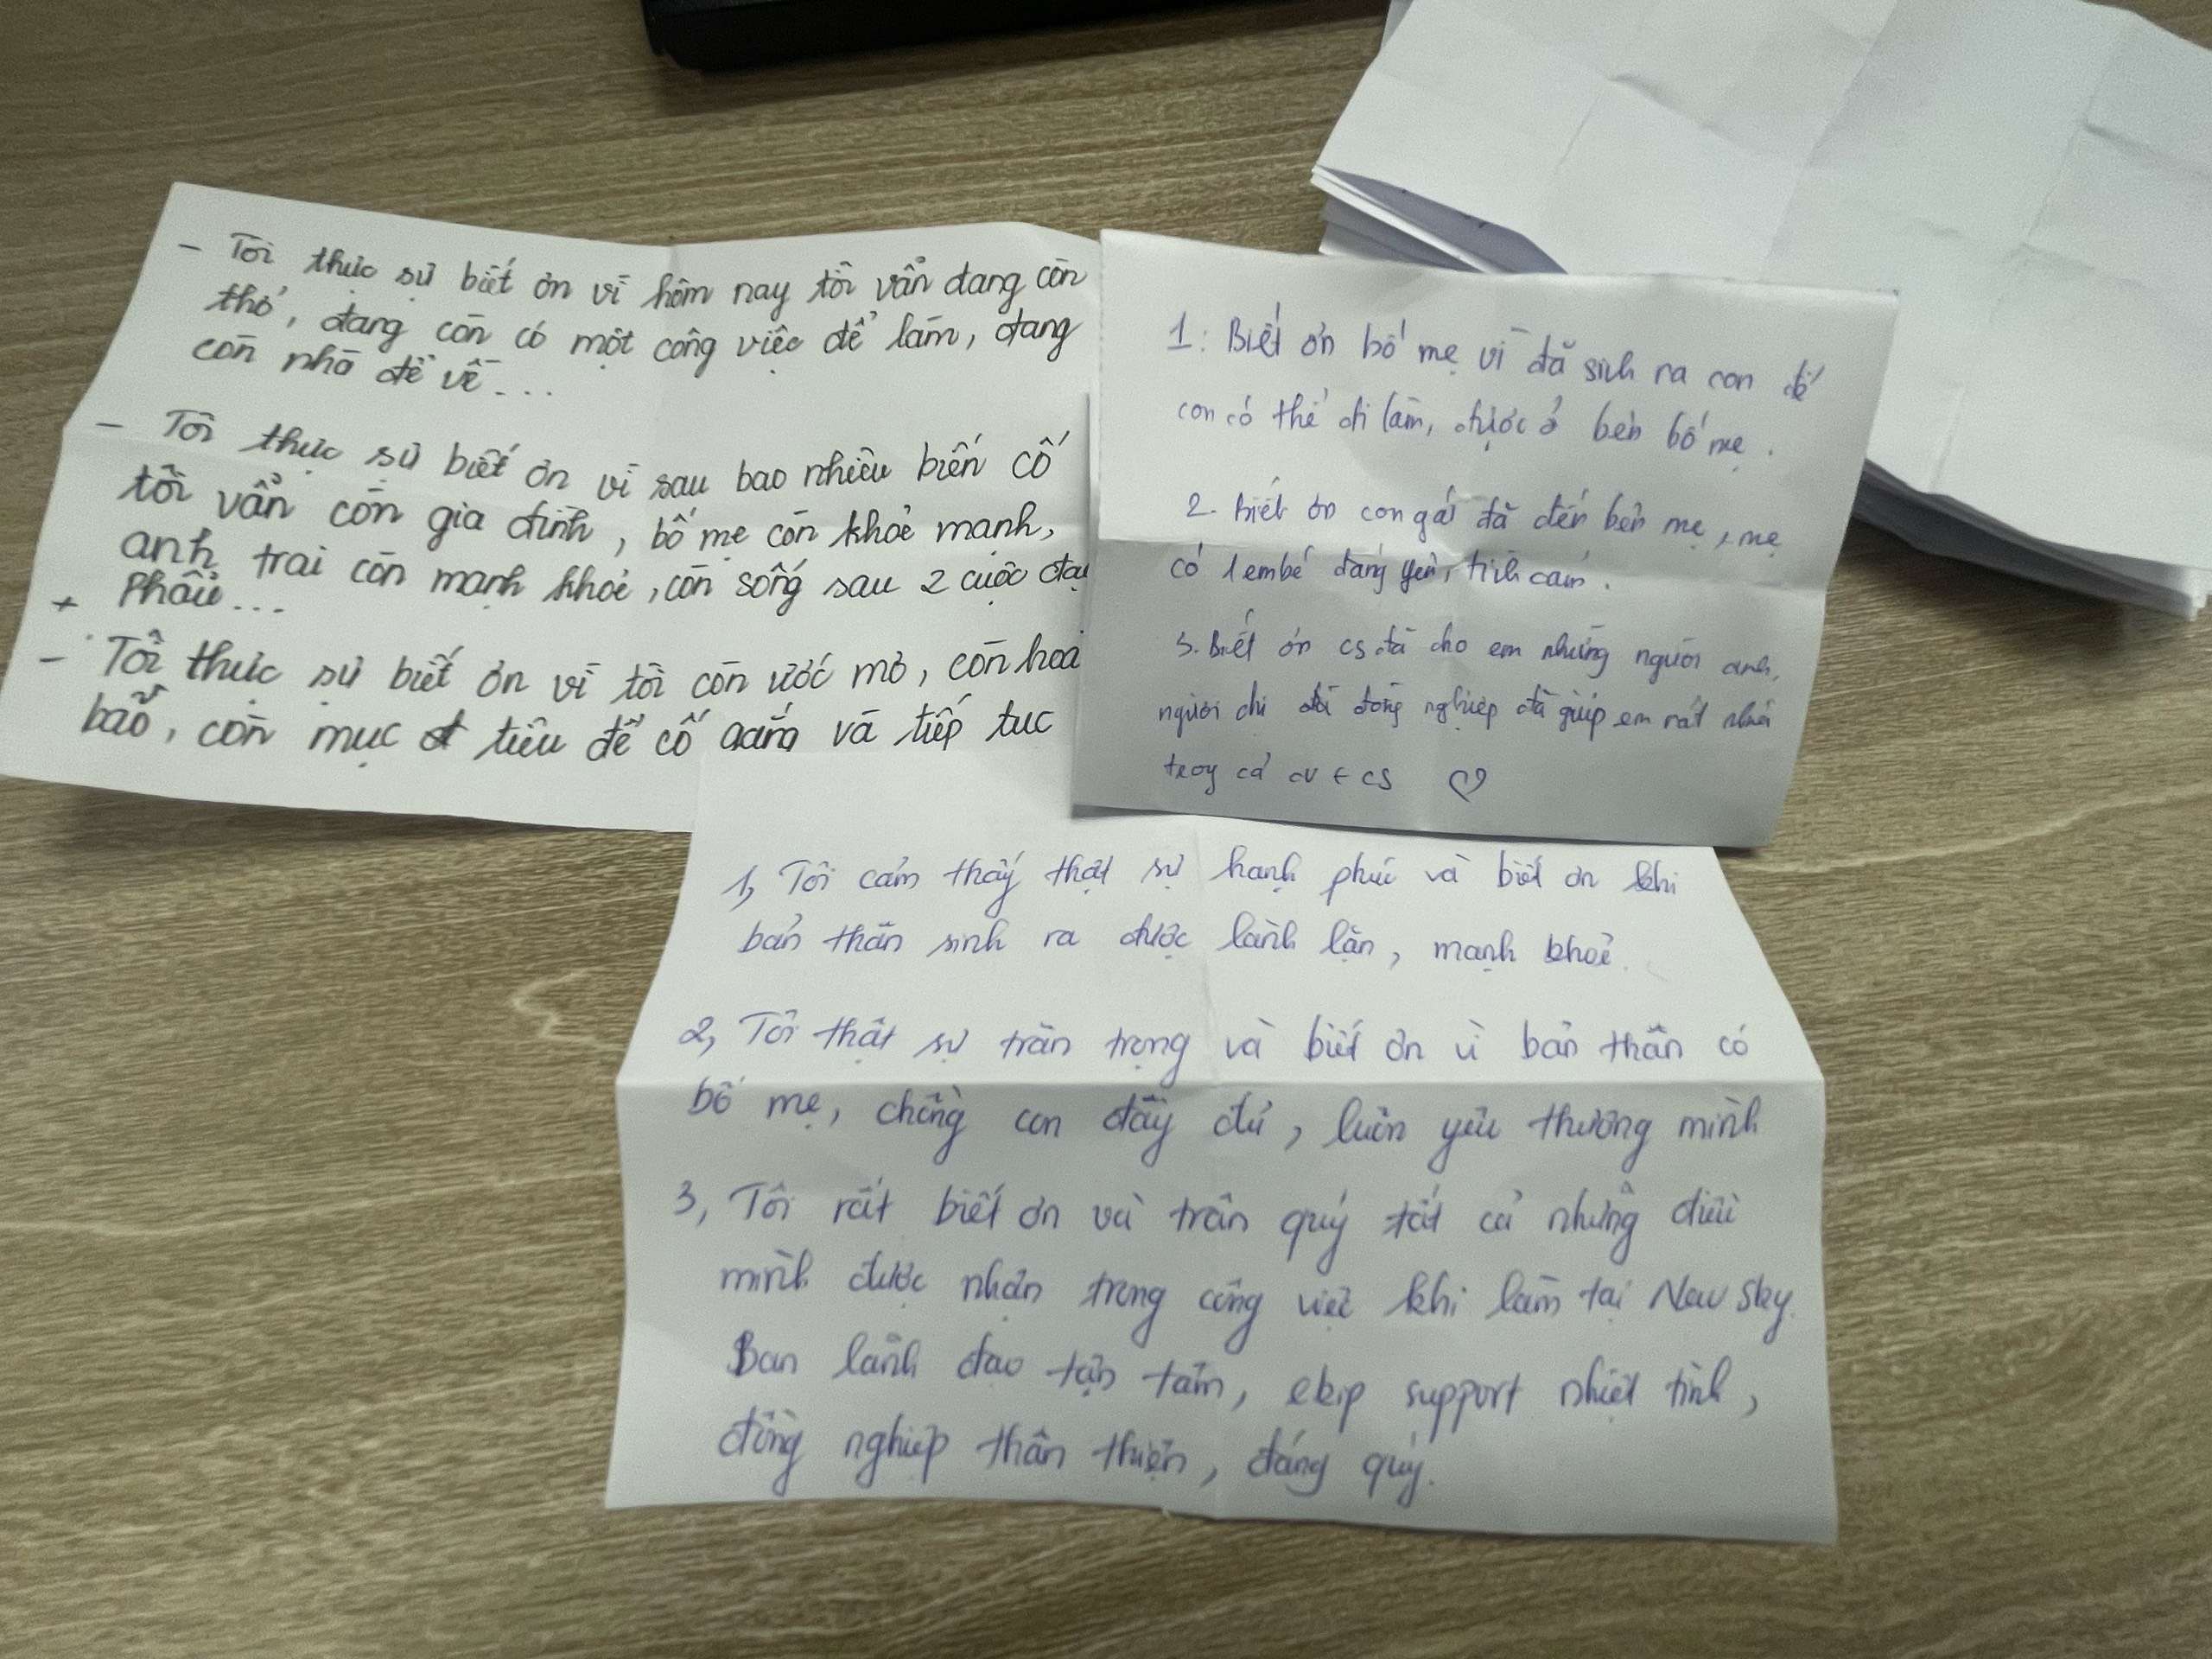 - Tôi thực sự biết ơn vì hôm nay tôi vẫn đang còn
thở, đang còn có một công việc để làm, đang
còn nhà để về...
- Tôi thực sự biết ơn vì sau bao nhiêu biến cố
tôi vẫn còn gia đình, bố mẹ còn khoẻ mạnh,
anh trai còn mạnh khoẻ, còn sống sau 2 cuộc đại
+ Phẫu...
- Tôi thực sự biết ơn vì tôi còn ước mơ, còn hoài
bão, còn mục tiêu để cố gắng và tiếp tục
1: Biết ơn bố mẹ vì đã sinh ra con để
con có thể đi làm, được ở bên bố mẹ.
2. Biết ơn con gái đã đến bên mẹ, mẹ
có 1 em bé đáng yêu, tình cảm.
3. Biết ơn cs đã cho em những người anh,
người chị đồng nghiệp đã giúp em rất nhiều
trog cả cv + cs ♡
1, Tôi cảm thấy thật sự hạnh phúc và biết ơn khi
bản thân sinh ra được lành lặn, mạnh khoẻ.
2, Tôi thật sự trân trọng và biết ơn vì bản thân có
bố mẹ, chồng con đầy đủ, luôn yêu thương mình
3, Tôi rất biết ơn và trân quý tất cả những điều
mình được nhận trong công việc khi làm tại New Sky.
Ban lãnh đạo tận tâm, ekip support nhiệt tình,
đồng nghiệp thân thiện, đáng quý.